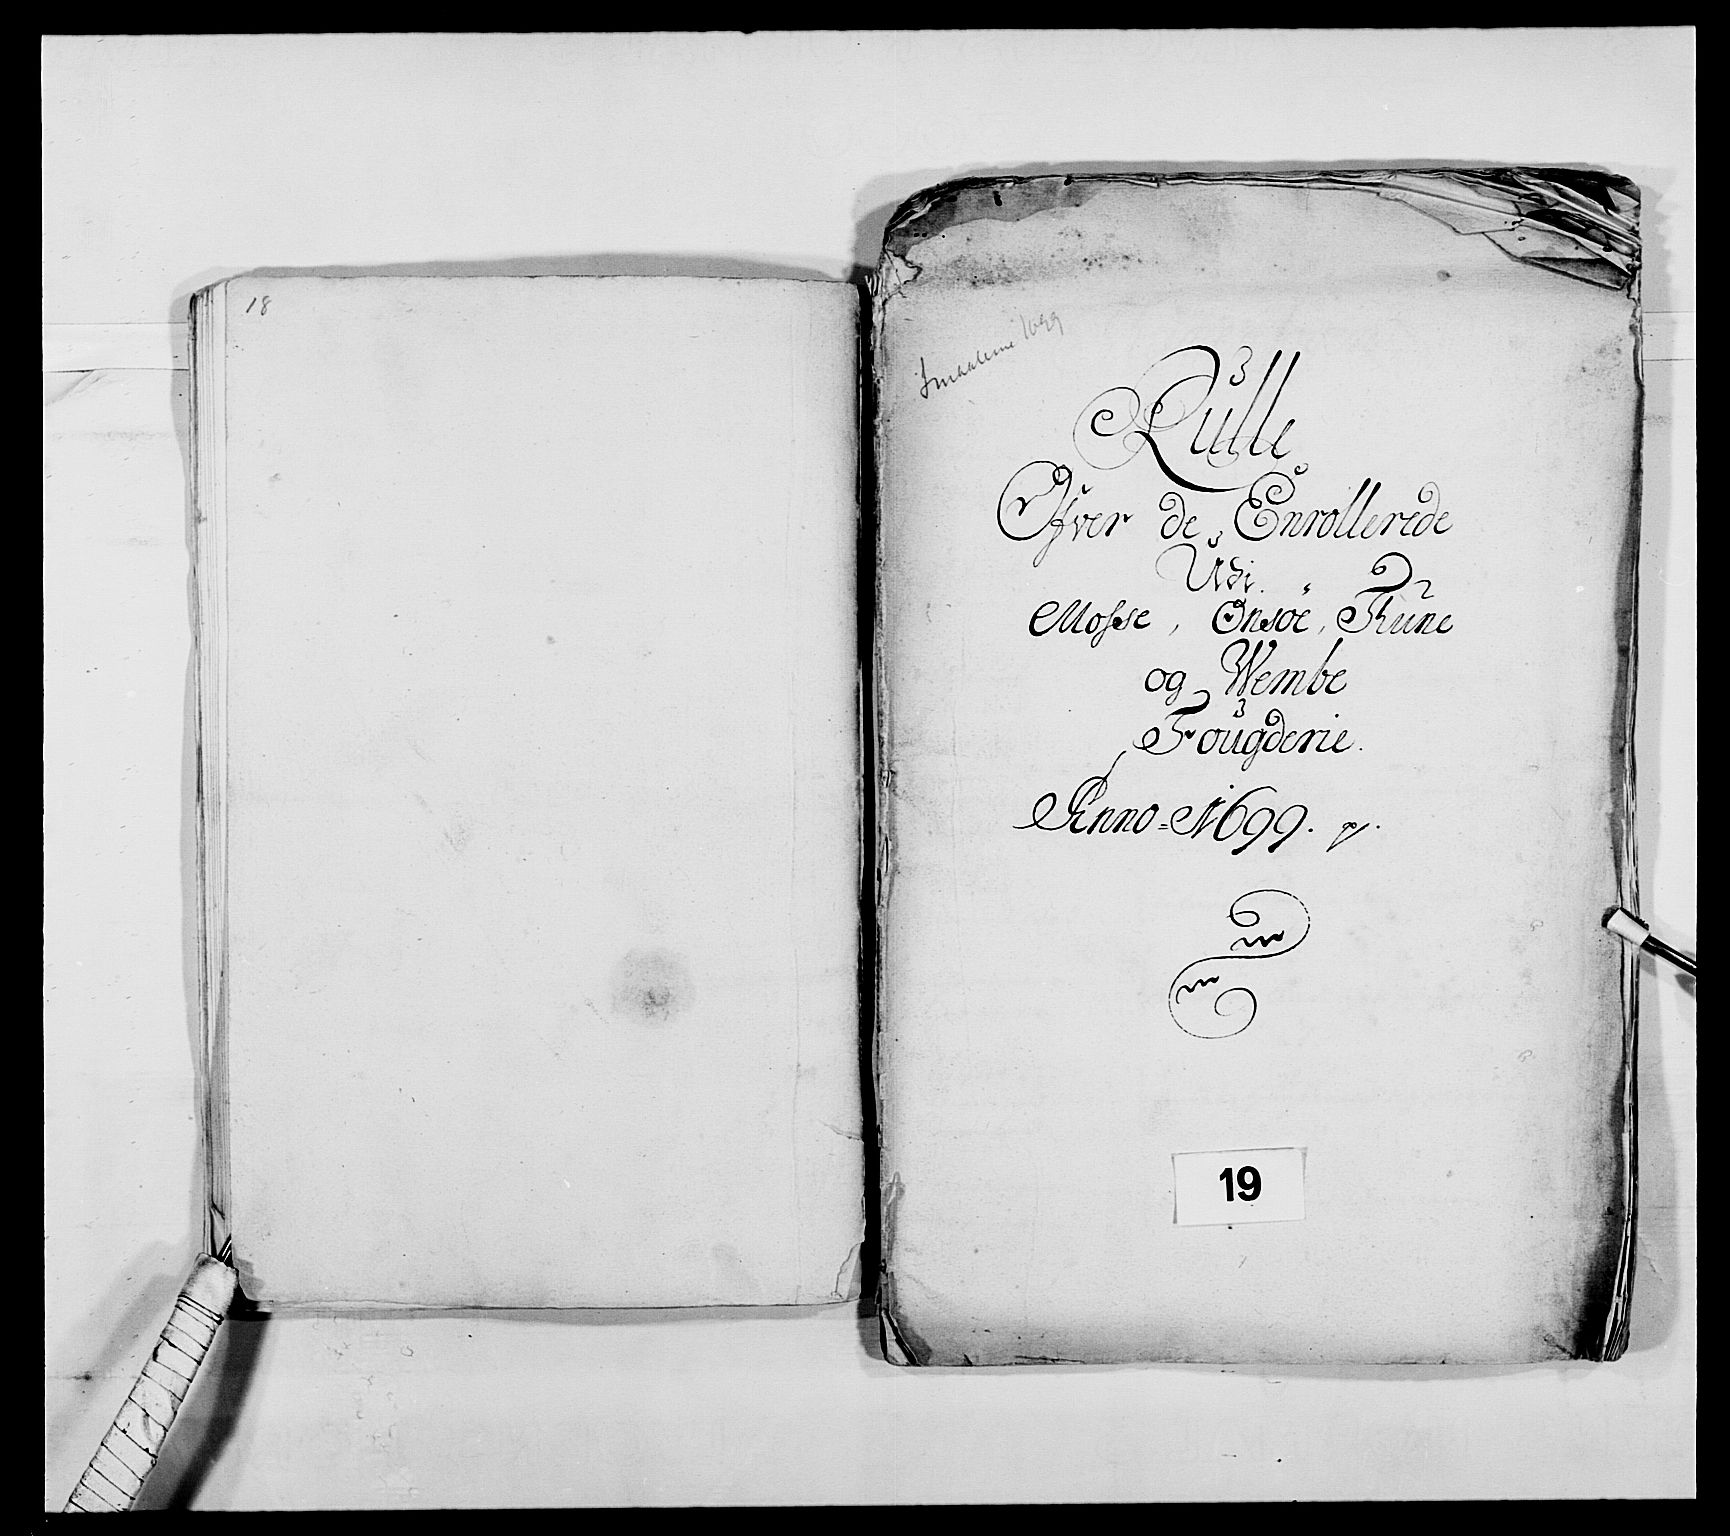 18
Smaalene 1699
Rulle
Ofver de Enrollerede
Udi
Mosse, Onsøe, Thune
og Wembe
Fougderie.
Anno 1699.
19